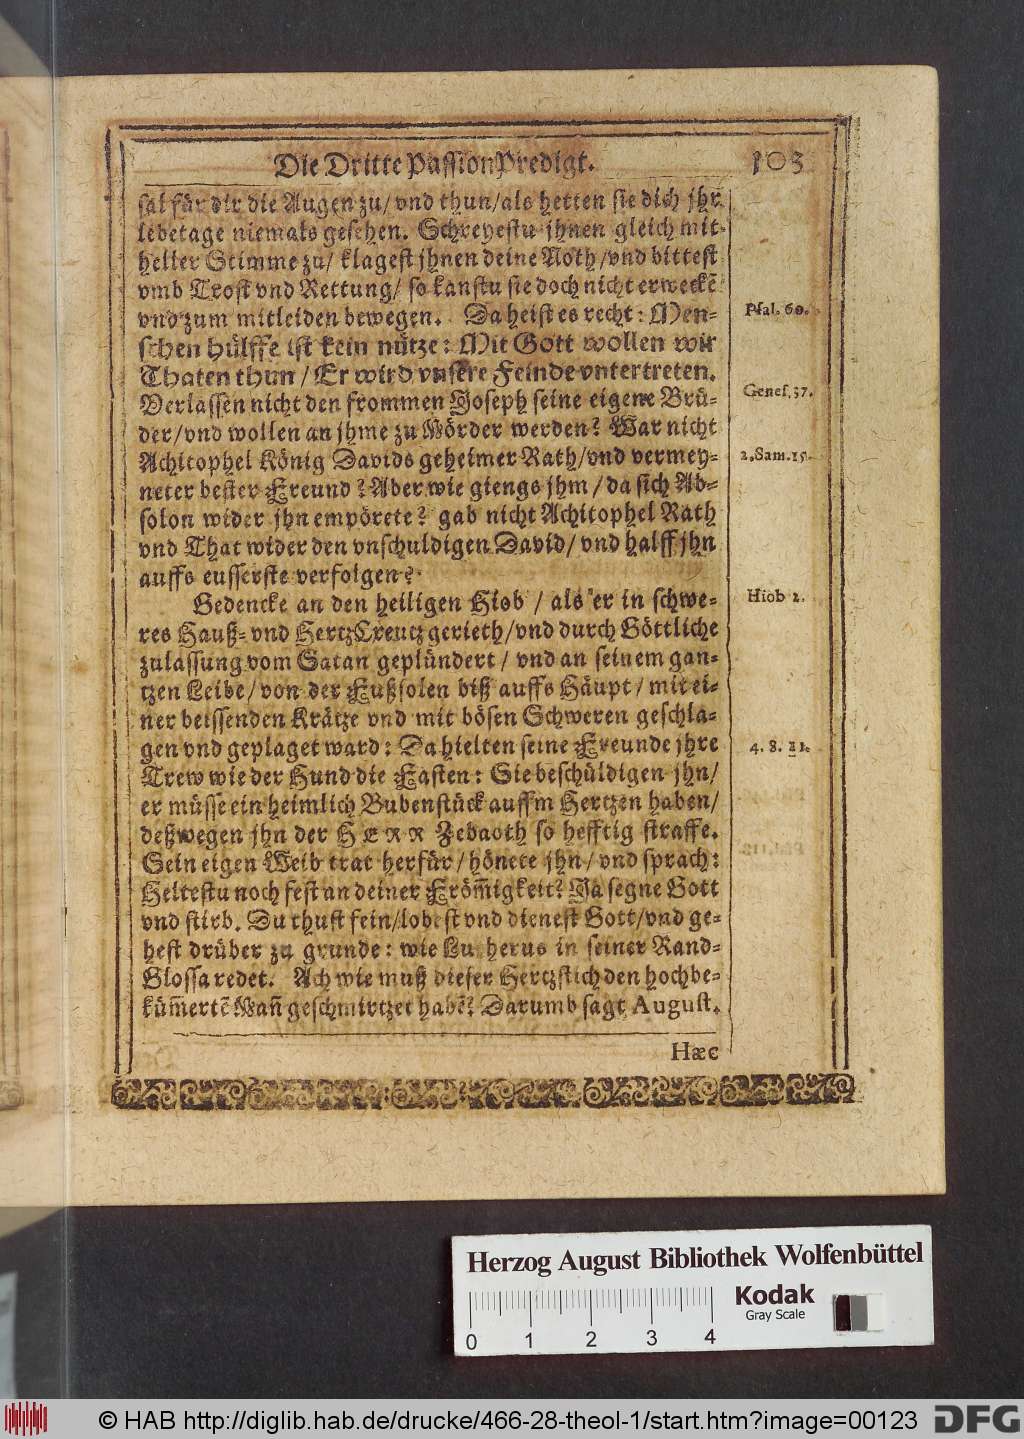 Die Dritte PassionPredigt. 103
sal für dir die Augen zu / vnd thun / als hetten sie dich jhr
lebetage niemals gesehen. Schreyestu jhnen gleich mit
heller Stimme zu / klagest jhnen deine Noth / vnd bittest
vmb Trost vnd Rettung / so kanstu sie doch nicht erweckẽ
vnd zum mitleiden bewegen. Da heist es recht: Men-
schen hülffe ist kein nütze: Mit Gott wollen wir
Thaten thun / Er wird vnsere Feinde vntertreten.
Verlassen nicht den frommen Joseph seine eigene Brü-
der / vnd wollen an jhme zu Mörder werden? War nicht
Achitophel König Davids geheimer Rath / vnd vermey-
neter bester Freund? Aber wie giengs jhm / da sich Ab-
solon wider jhn empörete? gab nicht Achitophel Rath
vnd That wider den vnschuldigen David / vnd halff jhn
auffs eusserste verfolgen?
Psal. 60.
Genes. 37.
2. Sam. 15.
Gedencke an den heiligen Hiob / als er in schwe-
res Hauß- vnd HertzCreutz gerieth / vnd durch Göttliche
zulassung vom Satan geplündert / vnd an seinem gan-
tzen Leibe / von der Fußsolen biß auffs Häupt / mit ei-
ner beissenden Krätze vnd mit bösen Schweren geschla-
gen vnd geplaget ward: Da hielten seine Freunde jhre
Trew wie der Hund die Fasten: Sie beschüldigen jhn /
er müsse ein heimlich Bubenstück auffm Hertzen haben /
deßwegen jhn der HERR Zebaoth so hefftig straffe.
Sein eigen Weib trat herfür / hönete jhn / vnd sprach:
Heltestu noch fest an deiner Fröm̃igkeit? Ja segne Gott
vnd stirb. Du thust fein / lobest vnd dienest Gott / vnd ge-
hest drüber zu grunde: wie Lutherus in seiner Rand-
Glossa redet. Ach wie muß dieser Hertzstich den hochbe-
küm̃ertẽ Mañ geschmirtzet habẽ? Darumb sagt August.
Hiob 2.
4. 8. 11.
Hæc
Herzog August Bibliothek Wolfenbüttel
0 1 2 3 4
Kodak
Gray Scale
© HAB http://diglib.hab.de/drucke/466-28-theol-1/start.htm?image=00123
DFG